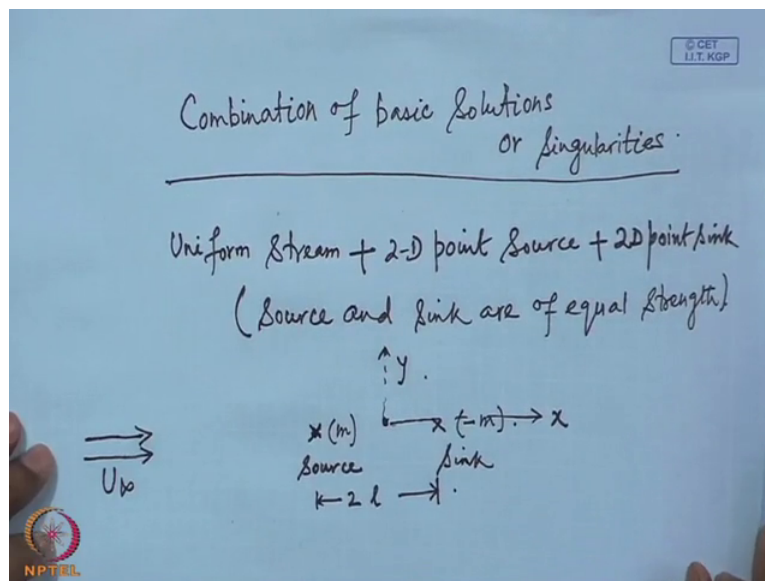 © CET
I.I.T. KGP
Combination of basic Solutions
or Singularities.
Uniform Stream + 2-D point Source + 2D point Sink
(Source and Sink are of equal Strength)
y.
x (m) x (-m). x
Source Sink
2 l
U∞
NPTEL